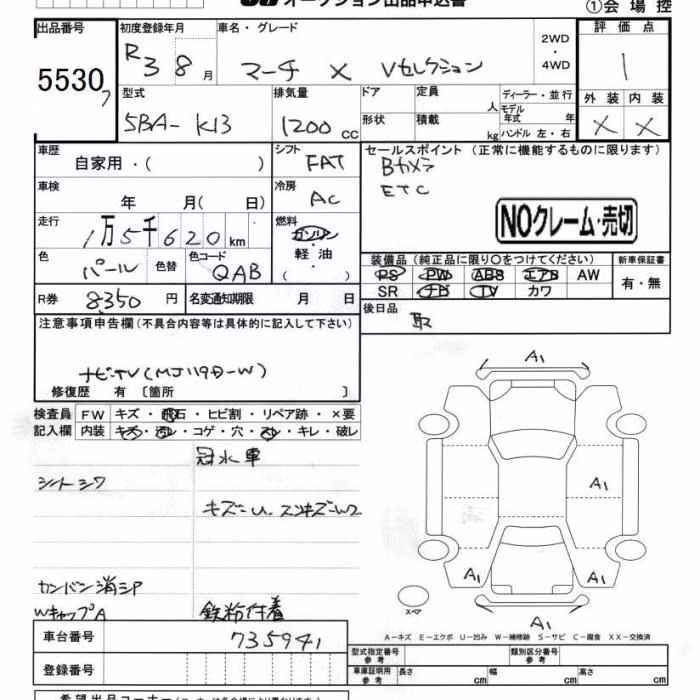 オークション出品申込書
①会場控
出品番号 初度登録年月 車名・グレード 2WD・4WD 評価点
5530 R3 8月 マーチ X Vセレクション 1
型式 排気量 ドア 定員 人 ディーラー・並行 外装 内装
5BA-K13 1200cc 形状 積載 kg モデル年式 年 ハンドル 左・右 X X
車歴 自家用・( ) シフト FAT セールスポイント (正常に機能するものに限ります)
Bカメラ
ETC
車検 年 月( 日) 冷房 AC
NOクレーム・売切
走行 1万5千620km 燃料 ガソリン・軽油・( )
色 パール 色替 色コード QAB
装備品(純正品に限り○をつけてください) 新車保証書
PS PW ABS エアB AW 有・無
SR ナビ TV カワ
R券 8350円 名変通知期限 月 日
後日品
取
注意事項申告欄(不具合内容等は具体的に記入して下さい)
ナビTV(MJ119D-W)
修復歴 有 〔箇所 〕
検査員 FW キズ・飛石・ヒビ割・リペア跡・×要
記入欄 内装 キズ・汚レ・コゲ・穴・スレ・キレ・破レ
冠水車
シートシワ
キズ=U.
カンバン消シP
WキャップA 鉄粉付着
A1
A1
A1 A1
A1
スペア
A-キズ E-エクボ U-凹み W-補修跡 S-サビ C-腐食 XX-交換済
車台番号 735941
型式指定番号 参考 類別区分番号 参考
登録番号
車庫証明用 参考 長さ cm 幅 cm 高さ cm